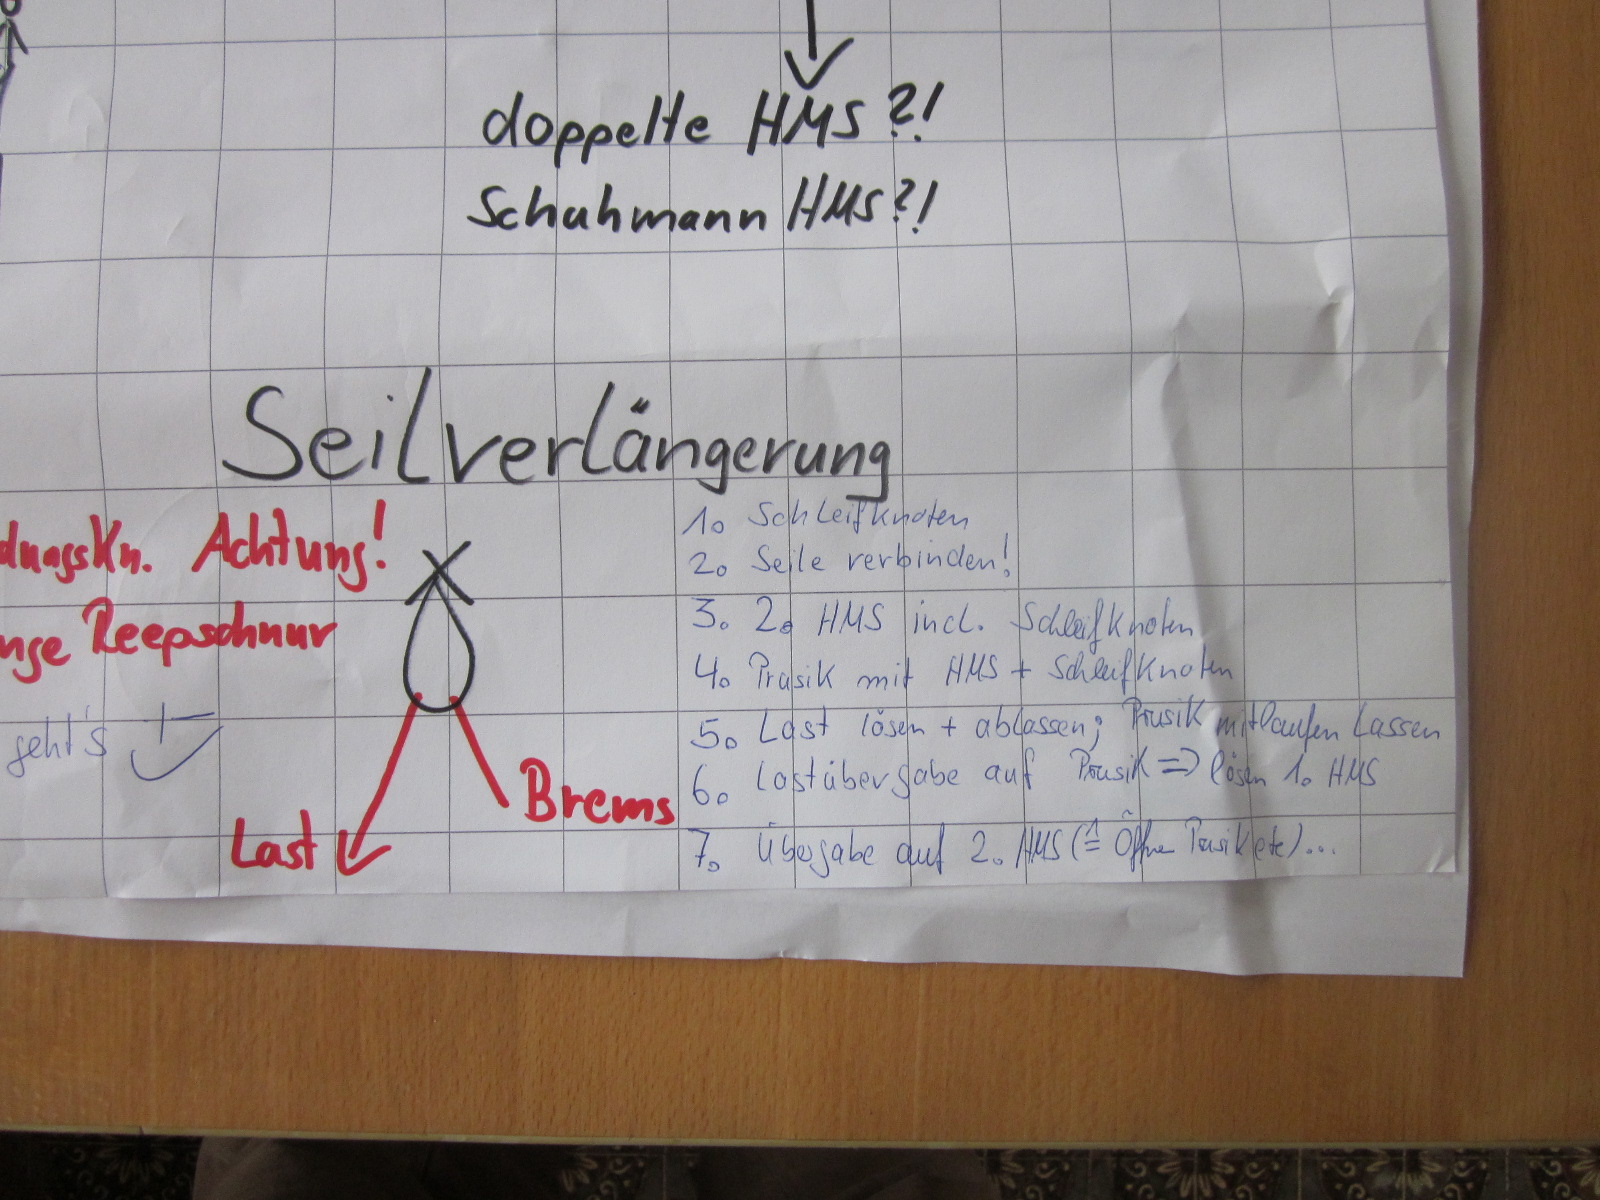 doppelte HMS?!
Schuhmann HMS?!
Seilverlängerung
dungskn. Achtung!
nge Reepschnur
geht's
Last
Brems
1. Schleifknoten
2. Seile verbinden!
3. 2. HMS incl. Schleifknoten
4. Prusik mit HMS + Schleifknoten
5. Last lösen + ablassen; Prusik mitlaufen lassen
6. Lastübergabe auf Prusik => lösen 1. HMS
7. Übergabe auf 2. HMS (≙ Öffne Prusik etc)...